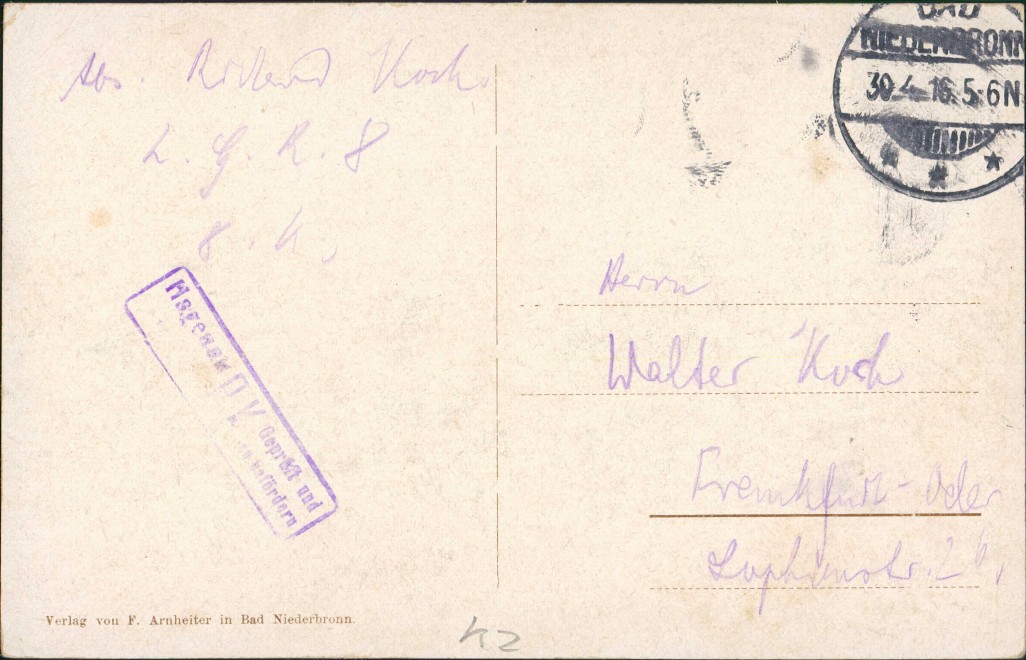 Abs. Richard Koch.
L. G. R. 8
8. K.
BAD
NIEDERBRONN
30.4.16.5-6N
Hagenau P.K.
Geprüft und
zu befördern
Herrn
Walter Koch
Frankfurt-Oder
Sophienstr. 2b,
Verlag von F. Arnheiter in Bad Niederbronn.
K2